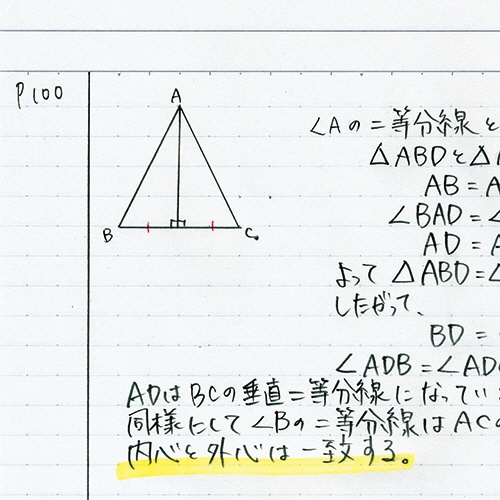 P100
A
B
C
∠Aの二等分線と
△ABDと△
AB = A
∠BAD = ∠
AD = A
よって △ABD = △
したがって、
BD =
∠ADB = ∠AD
ADはBCの垂直二等分線になってい
同様にして ∠Bの二等分線はACの
内心と外心は一致する。